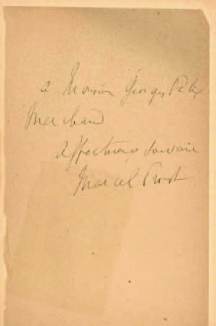 à Monsieur Georges
Marchand
affectueux souvenir
Marcel Proust